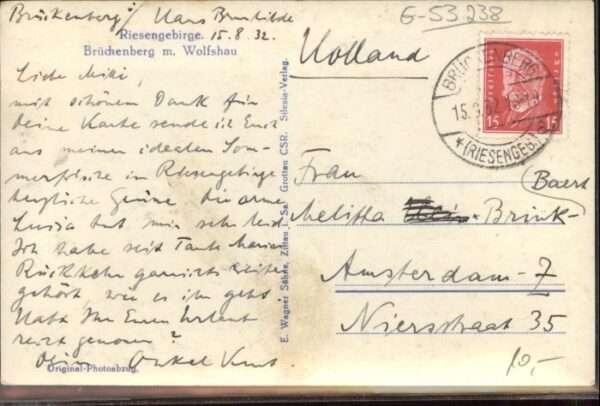 Brückenberg i/ Haus Brunhilde
Riesengebirge. 15.8.32.
Brüchenberg m. Wolfshau
Liebe Miki,
mit schönem Dank für
Deine Karte sende ich Euch
aus meiner idealen Som-
merfrische im Riesengebirge
herzliche Grüsse. Die arme
Lucia tut mir sehr leid
Ich habe seit Tante Maries
Rückkehr garnichts weiter
gehört, wie es ihr geht.
Habt Ihr Euren Urlaub
recht genossen?
Dein Onkel Kurt.
Original-Photoabzug.
E. Wagner Söhne, Zittau i. Sa. Grottau CSR. Silesia-Verlag.
G-53238
Holland
BRÜCKENBERG
15.8.32
* (RIESENGEB.)
15 15
Frau
Melitta Brink-
Baers
Amsterdam-Z
Niersstraat 35
10,-